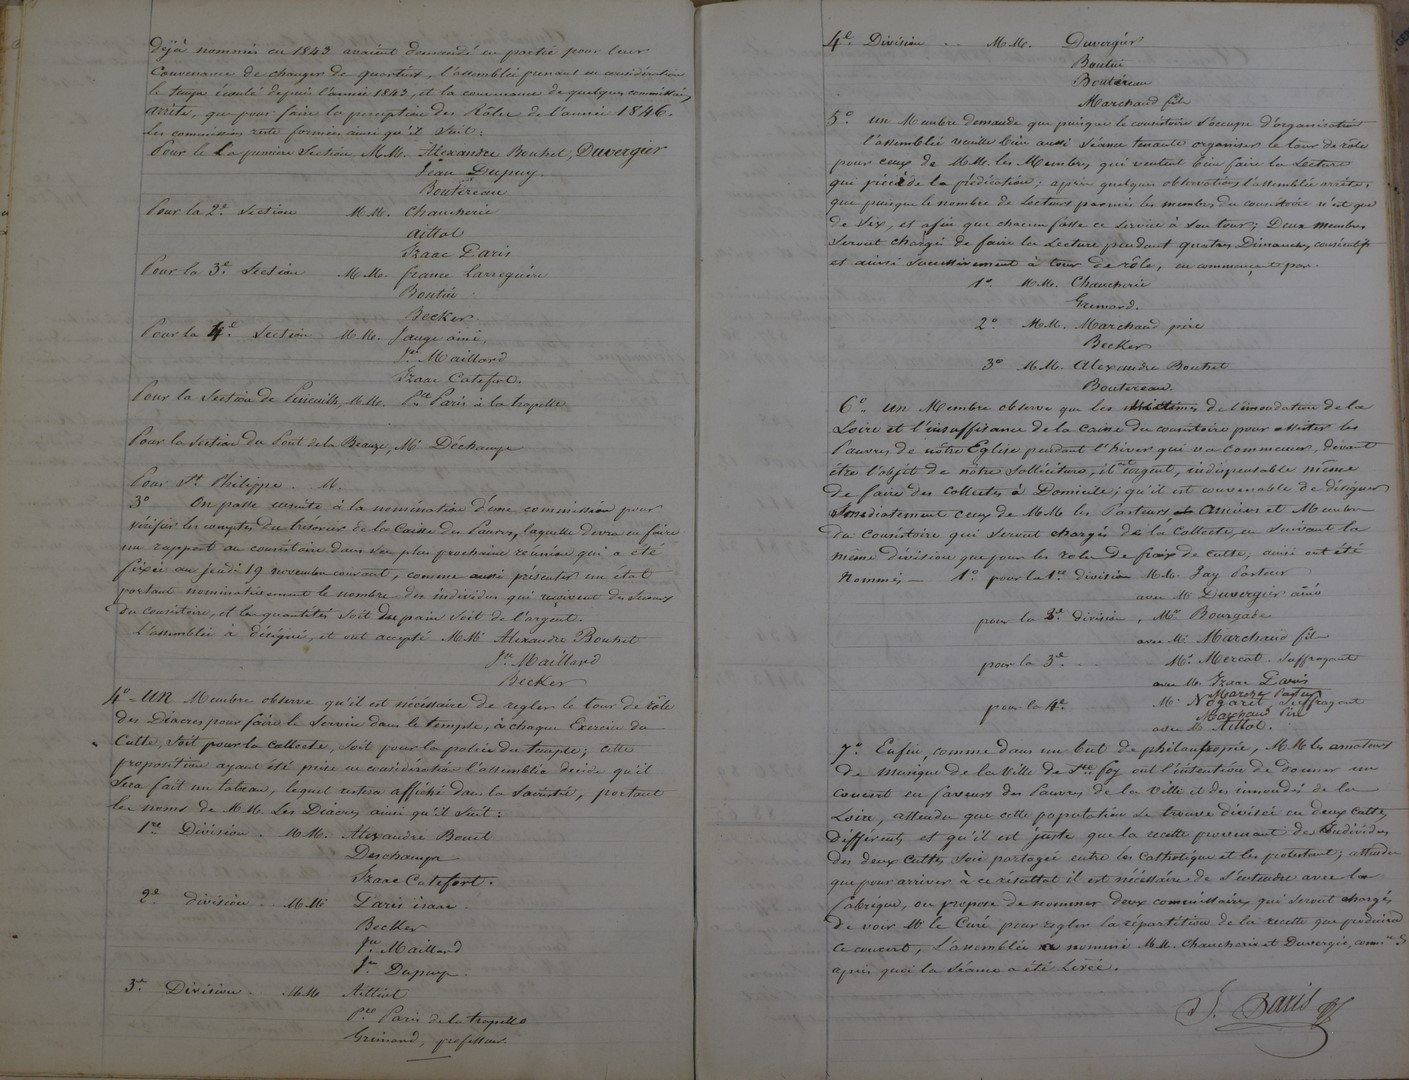 déjà nommés en 1843 avaient demandé en partie pour leur
Convenance de changer de quartier, l'assemblée prenant en considération
le temps écoulé depuis l'année 1843, et la convenance de quelques commissaires,
arrête, que pour faire la perception des Rôles de l'année 1846.
Les commissions reste formées ainsi qu'il suit:
Pour la première Section M.M. Alexandre Bouhet, Duvergier
Jean Dupuy.
Boutereau
Pour la 2e. Section M.M. Chaucherie
Aillot
Izaac Paris
Pour la 3e. Section M.M. france Larreguère
Boutin
Becker.
Pour la 4e. Section M.M. Jauge ainé,
Jn. Maillard
Izaac Catefort.
Pour la Section de M.M. Pre. Paris à la trapelle
Pour la Section du Pont de la Beauze, Mr. Déchamps
Pour St. Philippe. M.
3o On passe ensuite à la nomination d'une commission pour
vérifier les comptes du trésorier de la Caisse des Pauvres, laquelle devra en faire
un rapport au consistoire dans son plus prochaine réunion qui a été
fixée au jeudi 19 novembre courant, comme aussi présenter un état
portant nominativement le nombre des individus qui reçoivent des Secours
du consistoire, et la quantités soit du pain soit de l'argent.
L'assemblée à désigné, et ont accepté M.M. Alexandre Bouhet
Jn. Maillard
Becker
4o. UN Membre observe qu'il est nécessaire de regler le tour de rôle
des Diacres pour faire le Service dans le temple, à chaque Exercice du
Culte, Soit pour la collecte, Soit pour la police du temple; cette
proposition ayant été prise en considération l'assemblée décide qu'il
Sera fait un tableau, lequel restera affiché dans la Sacristie, portant
les noms de M.M. Les Diacres ainsi qu'il Suit:
1re. Division. M.M. Alexandre Bouet
Deschamps
Izaac Catefort.
2e. Division. M.M. Paris isaac.
Becker
Jn. Maillard
Jn. Dupuy.
3e. Division. M.M. Aillot
Pre. Paris de la trapelle
Grimard, professeur.
4e. Division .. M.M. Duvergier
Boutin
Boutereau
Marchand fils
5o. un Membre demande que puisque le consistoire s'occupe d'organisation
l'assemblée veuille bien aussi Séance tenante organiser le tour de rôle
pour ceux de M.M. les Membres, qui veulent bien faire la Lecture
qui précède la prédication; après quelques observations l'assemblée arrête.
que puisque le nombre de Lecteurs parmi les membres du consistoire n'est que
de Six, et afin que chacun fasse ce service à Son tour; Deux membres
Seront chargé de faire la Lecture pendant quatres Dimanches consécutifs
et ainsi Successivement à tour de rôle, en commençant par.
1o. M.M. Chaucherie
Grimard.
2o M.M. Marchand père
Becker
3o M.M. Alexandre Bouhet
Boutereau.
6o. un Membre observe que les Victimes de l'innondation de la
Loire et l'insuffisance de la Caisse du consistoire pour assister les
Pauvres de nôtre Eglise pendant l'hiver qui va commencer, devant
être l'objet de nôtre Sollicitude, il est urgent, indispensable même
de faire des collectes à Domicile; qu'il est convenable de désigner
Immédiatement ceux de M.M. les Pasteurs Anciens et Membres
du Consistoire qui Seront chargés de la Collecte, en Suivant la
même division que pour les roles de fraix de culte; ainsi ont été
Nommés — 1o. pour la 1re division M.M. Jay Pasteur
avec Mr. Duvergier ainé
pour la 2e. division, Mr. Bourgade
avec Mr. Marchand fils
pour la 3e. .. Mr. Mercat. Suffragant
avec Mr. Izaac Paris
Pasteur
pour la 4e. Mr. Nogaret Suffragant
Marchand Père
avec Mr. Aillot.
7o. Enfin, comme dans un but de philantropie, M.M. les amateurs
de musique de la Ville de Ste. foy ont l'intention de donner un
concert en faveurs des Pauvres de la ville et des innondés de la
Loire, attendu que cette population Se trouve divisée en deux cultes
différents et qu'il est juste que la recette provenant de Individus
des deux Cultes Soie partagée entre les Catholiques et les protestants, attendu
que pour arriver à ce résultat il est nécéssaire de S'entendre avec la
fabrique, on propose de nommer deux commissaires qui Seront chargés
de voir Mr. le Curé, pour regler la répartition de la recette que produira
ce concert, L'assemblée a nommé M.M. Chaucherie et Duvergier,
après quoi la Séance a été Levée.
J. Paris